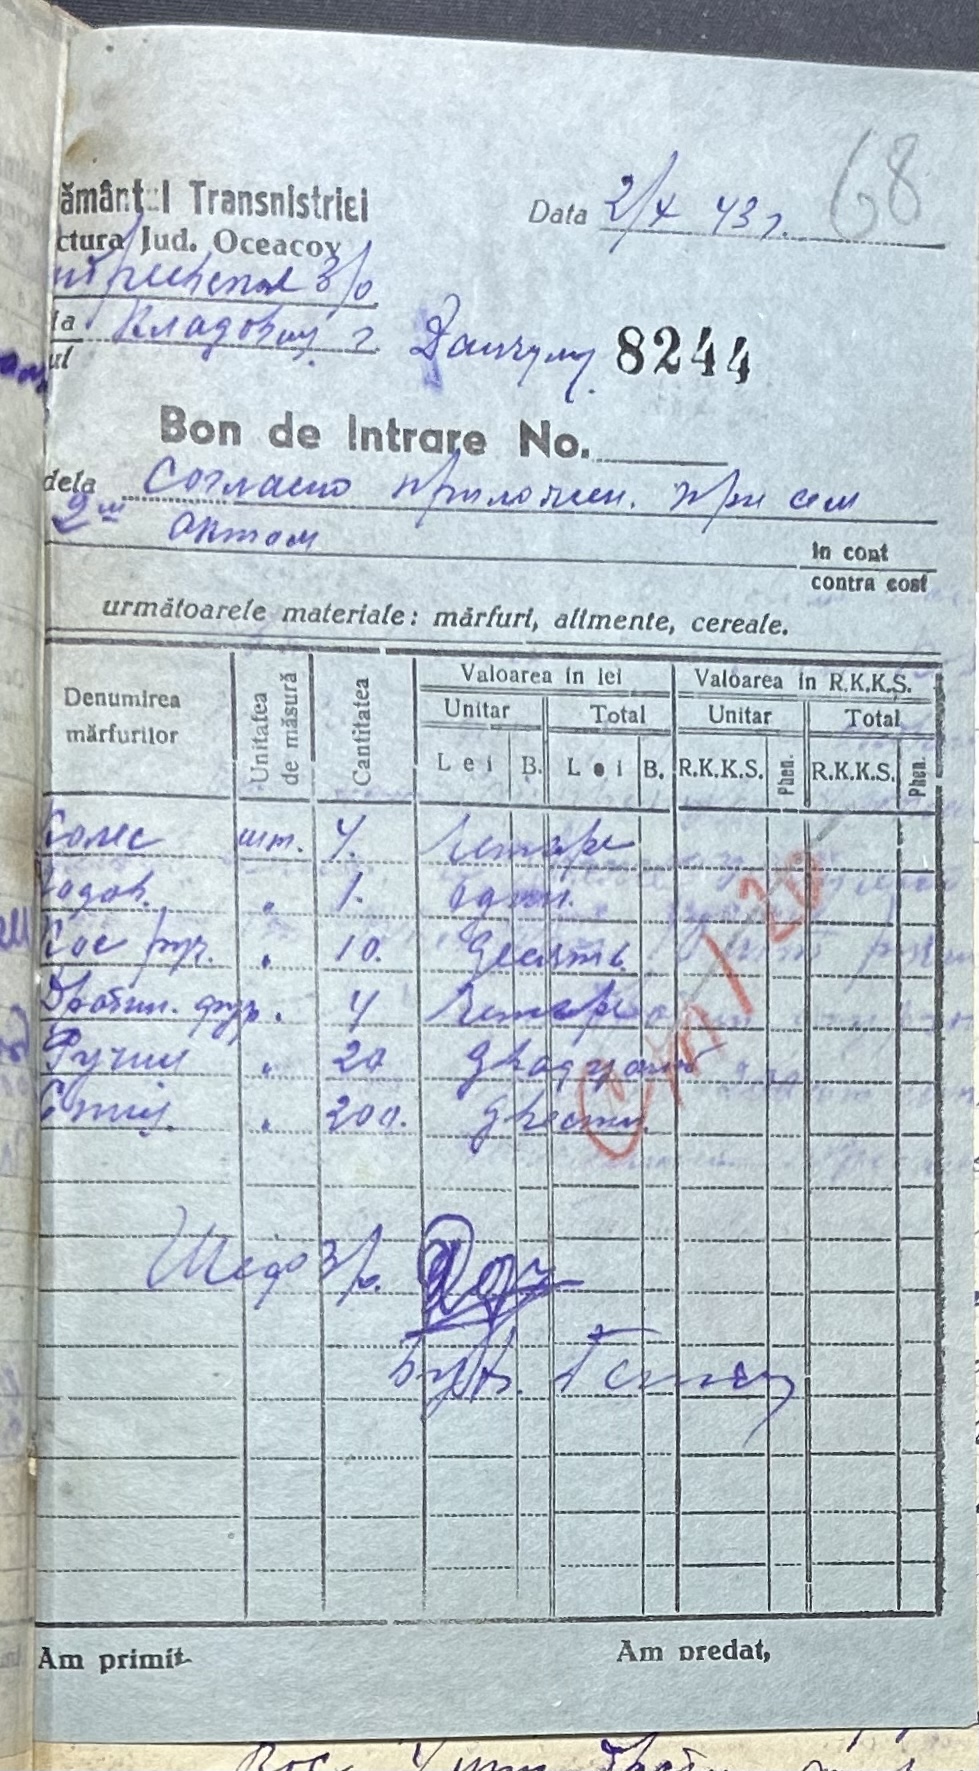 68
ământul Transnistriei
Data 2/X 43 г.
ctura Jud. Oceacov
з/о
la Кладовщ. г.
ul
8244
Bon de Intrare No.
dela Согласно приложен. при сем
2 м
актам
in cont
contra cost
următoarele materiale: mărfuri, alimente, cereale.
Denumirea mărfurilor Unitatea de măsură Cantitatea Valoarea în lei Valoarea în R.K.K.S.
Unitar Total Unitar Total
Lei B. Lei B. R.K.K.S. Phen. R.K.K.S. Phen.
Колес шт. 4. четыре
" 1. один.
Кос руч. " 10. десять
Дробин. " 4 четыре
Ручки " 20 двадцать
Спиц. " 200. двести
з/о.
Бухг.
Am primit Am predat,